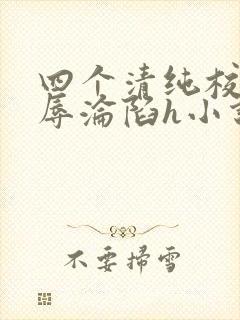 四个清纯校
辱沦陷h小
不要掃雪